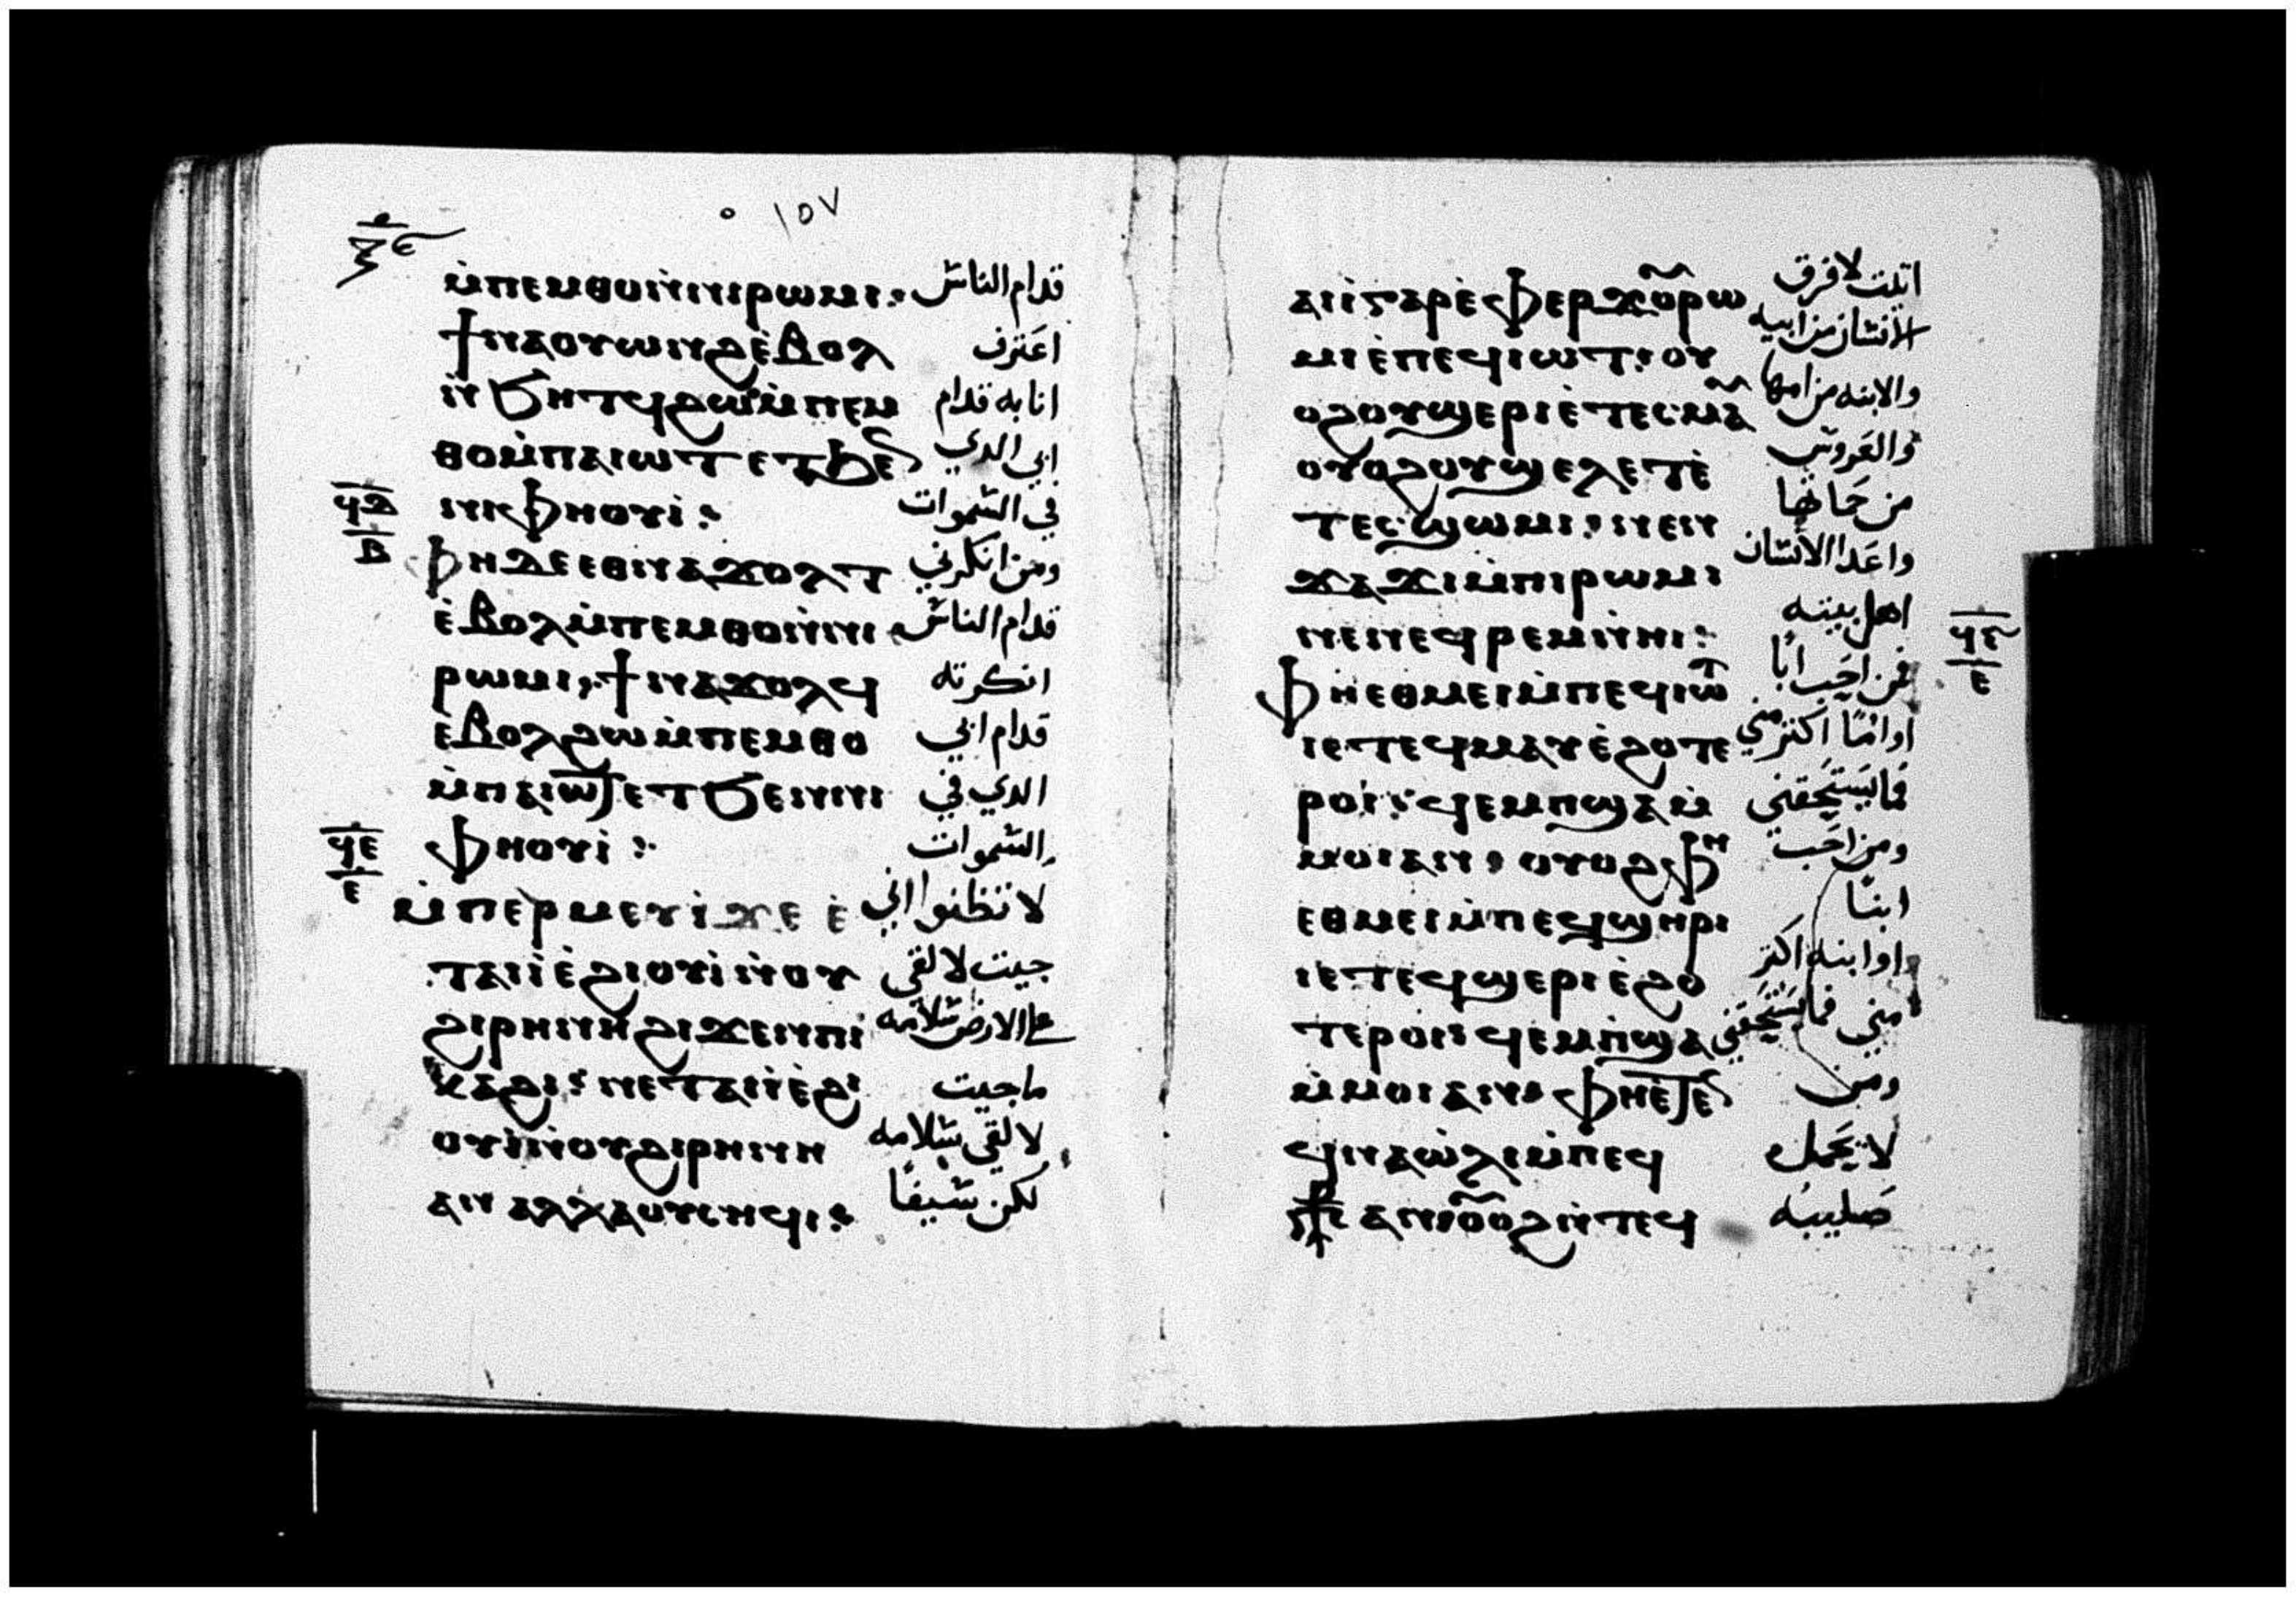 ١٥٧
ⲙ̀ⲡⲉⲙⲑⲟⲛ̀ⲛⲓⲣⲱⲙⲓ: قدام الناس
ϯⲛⲁⲟⲩⲱⲛϩⲉ̀ⲃⲟⲗ اعترف
ⲛ̀ϧⲏⲧϥϩⲱⲙ̀ⲡⲉⲙ انا به قدام
ⲑⲟⲙ̀ⲡⲁⲓⲱⲧⲉⲧϧⲉ ابي الدي
ⲛⲛⲓⲫⲏⲟⲩⲓ̀: في السموات
ϥⲇ
ⲃ
ⲫⲏⲇⲉⲉⲑⲛⲁϫⲟⲗⲧ ومن انكرني
ⲉ̀ⲃⲟⲗⲙ̀ⲡⲉⲙⲑⲟⲛ̀ⲛⲓ قدام الناس
ⲣⲱⲙⲓ, ϯⲛⲁϫⲟⲗϥ انكرته
ⲉ̀ⲃⲟⲗϩⲱⲙ̀ⲡⲉⲙⲑⲟ قدام ابي
ⲙ̀ⲡⲁⲓⲱⲧⲉⲧϧⲉⲛⲛⲓ الدي في
ⲫⲏⲟⲩⲓ̀: السموات
ϥⲉ
ⲉ
ⲙ̀ⲡⲉⲣⲙⲉⲩⲓ̀ϫⲉ ⲉ̀ لا تظنوا اني
ⲧⲁⲓⲓ̀ⲉ̀ϩⲓⲟⲩⲓ̀ⲛ̀ⲟⲩ جيت لالقي
ϩⲓⲣⲏⲛⲏϩⲓϫⲉⲛⲡⲓ على الارض سلامه
ⲕⲁϩⲓ: ⲛⲉⲧⲁⲓⲓ̀ⲉ̀ϩⲓ ما جيت
ⲟⲩⲓ̀ⲛ̀ⲟⲩϩⲓⲣⲏⲛⲏ لالقي سلامه
ⲁⲛ ⲁⲗⲗⲁⲟⲩⲥⲏϥⲓ: لكن سيفًا
ⲁⲓⲓ̀ⲅⲁⲣⲉ̀ⲫⲉⲣϫⲟⲣⲱ اتيت لافرق
ⲙⲓⲉ̀ⲡⲉϥⲓⲱⲧ: ⲟⲩ الانسان من ابيه
ⲟϩⲟⲩϣⲉⲣⲓⲉ̀ⲧⲉⲥⲙⲁ والابنه من امها
ⲟⲩⲟϩⲟⲩϣⲉⲗⲉⲧⲉ̀ والعروس
ⲧⲉⲥϣⲱⲙⲓ: ⲛⲉⲛ من حماتها
ϫⲁϫⲓⲙ̀ⲡⲓⲣⲱⲙⲓ واعدا الانسان
ⲛⲉⲛⲉϥⲣⲉⲙⲛ̀ⲏⲓ: اهل بيته
ϥⲋ
ⲉ
ⲫⲏⲉⲑⲙⲉⲓⲙ̀ⲡⲉϥⲓⲱⲧ فمن احب ابًا
ⲓⲉⲧⲉϥⲙⲁⲩⲉ̀ϩⲟⲧⲉ اوامًا اكثر مني
ⲣⲟⲓ: ϥⲉⲙⲡϣⲁⲙ̀ فما يستحقني
ⲙⲟⲓⲁⲛ: ⲟⲩⲟϩⲫⲏ ومن احب
ⲉⲑⲙⲉⲓⲙ̀ⲡⲉϥϣⲏⲣⲓ ابنًا
ⲓⲉⲧⲉϥϣⲉⲣⲓⲉ̀ϩⲟ اوابنه اكثر
ⲧⲉⲣⲟⲓ: ϥⲉⲙⲡ̀ϣⲁ مني فما يستحقني
ⲙ̀ⲙⲟⲓⲁⲛ: ⲫⲏⲉ̀ⲧⲉ ومن
ϥⲛⲁⲱ̀ⲗⲓⲙ̀ⲡⲉϥ لا يحمل
ⲁⲛⲟⲩⲟϩⲛ̀ⲧⲉϥ صليبه